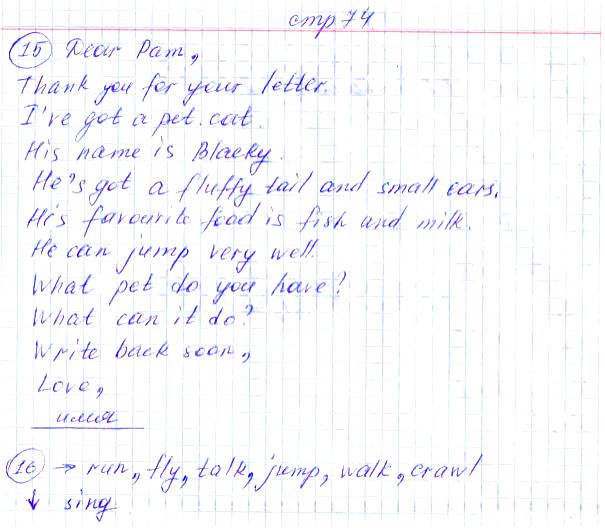 стр 74
15 Dear Pam,
Thank you for your letter.
I've got a pet. cat.
His name is Blacky.
He's got a fluffy tail and small ears.
His favourite food is fish and milk.
He can jump very well.
What pet do you have?
What can it do?
Write back soon,
Love,
имя
16 → run, fly, talk, jump, walk, crawl
↓ sing